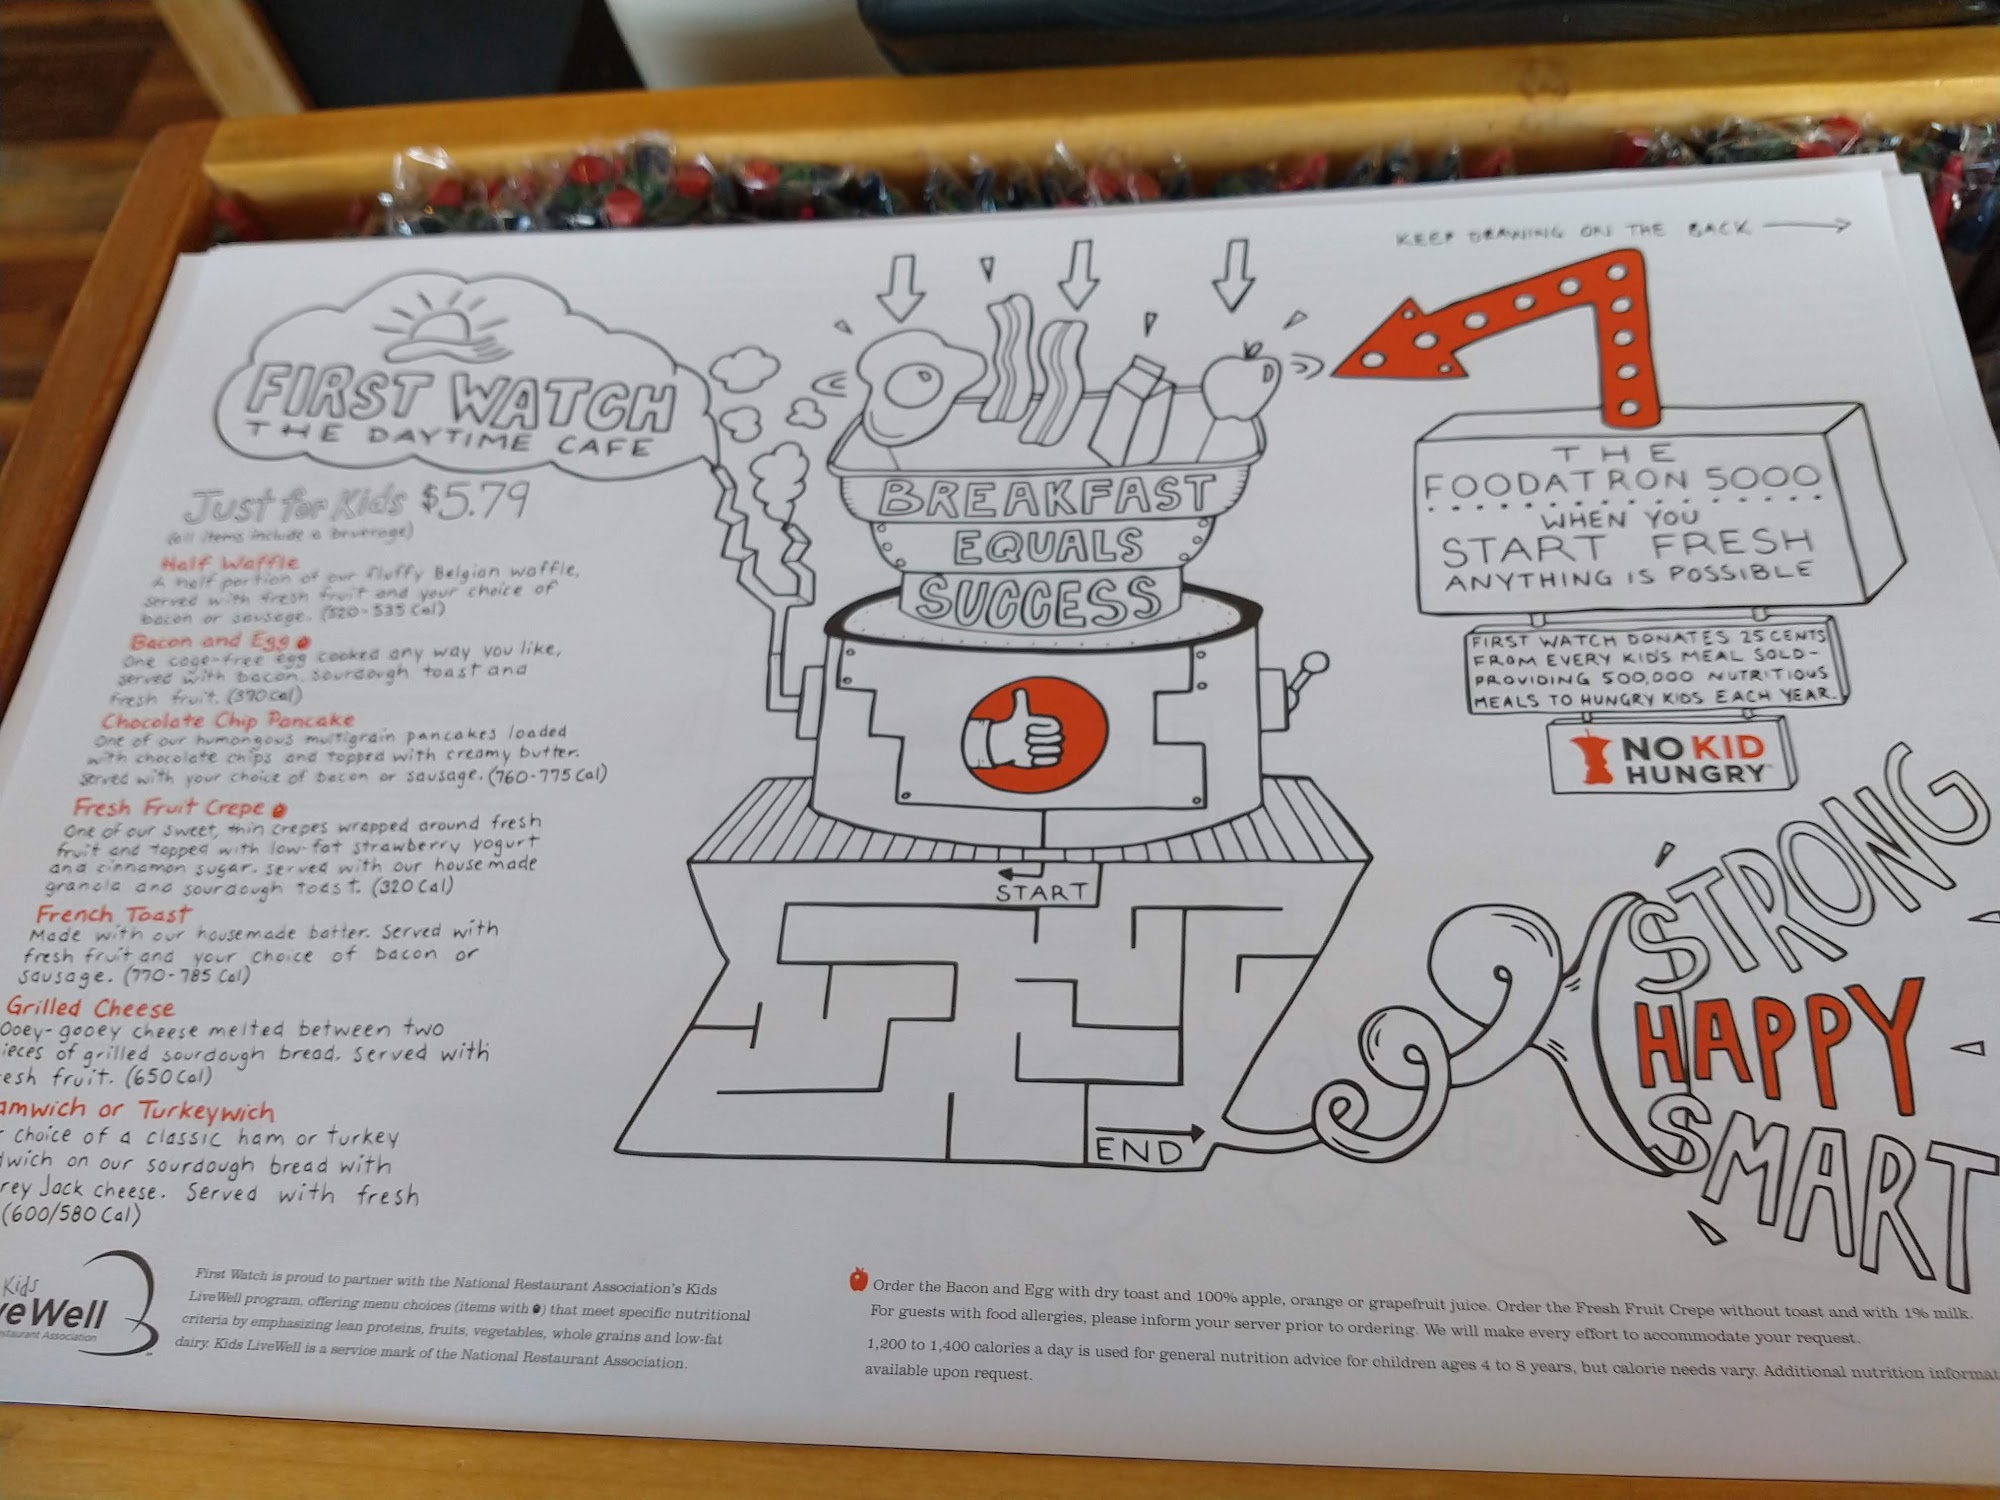 KEEP DRAWING ON THE BACK
FIRST WATCH
THE DAYTIME CAFE
Just for Kids $5.79
(all items include a beverage)
Half Waffle
A half portion of our fluffy Belgian waffle,
served with fresh fruit and your choice of
bacon or sausage. (520-535 Cal)
Bacon and Egg
One cage-free egg cooked any way you like,
served with bacon, sourdough toast and
fresh fruit. (390 Cal)
Chocolate Chip Pancake
One of our humongous multigrain pancakes loaded
with chocolate chips and topped with creamy butter.
Served with your choice of bacon or sausage. (760-775 Cal)
Fresh Fruit Crepe
One of our sweet, thin crepes wrapped around fresh
fruit and topped with low-fat strawberry yogurt
and cinnamon sugar. Served with our housemade
granola and sourdough toast. (320 Cal)
French Toast
Made with our housemade batter. Served with
fresh fruit and your choice of bacon or
sausage. (770-785 Cal)
Grilled Cheese
Ooey-gooey cheese melted between two
ieces of grilled sourdough bread. Served with
esh fruit. (650 Cal)
amwich or Turkeywich
r choice of a classic ham or turkey
dwich on our sourdough bread with
rey Jack cheese. Served with fresh
(600/580 Cal)
BREAKFAST
EQUALS
SUCCESS
START
END
THE
FOODATRON 5000
WHEN YOU
START FRESH
ANYTHING IS POSSIBLE
FIRST WATCH DONATES 25 CENTS
FROM EVERY KID'S MEAL SOLD-
PROVIDING 500,000 NUTRITIOUS
MEALS TO HUNGRY KIDS EACH YEAR.
NO KID
HUNGRY
STRONG
HAPPY
SMART
Kids
veWell
staurant Association
First Watch is proud to partner with the National Restaurant Association's Kids
LiveWell program, offering menu choices (items with ) that meet specific nutritional
criteria by emphasizing lean proteins, fruits, vegetables, whole grains and low-fat
dairy. Kids LiveWell is a service mark of the National Restaurant Association.
Order the Bacon and Egg with dry toast and 100% apple, orange or grapefruit juice. Order the Fresh Fruit Crepe without toast and with 1% milk.
For guests with food allergies, please inform your server prior to ordering. We will make every effort to accommodate your request.
1,200 to 1,400 calories a day is used for general nutrition advice for children ages 4 to 8 years, but calorie needs vary. Additional nutrition informat
available upon request.